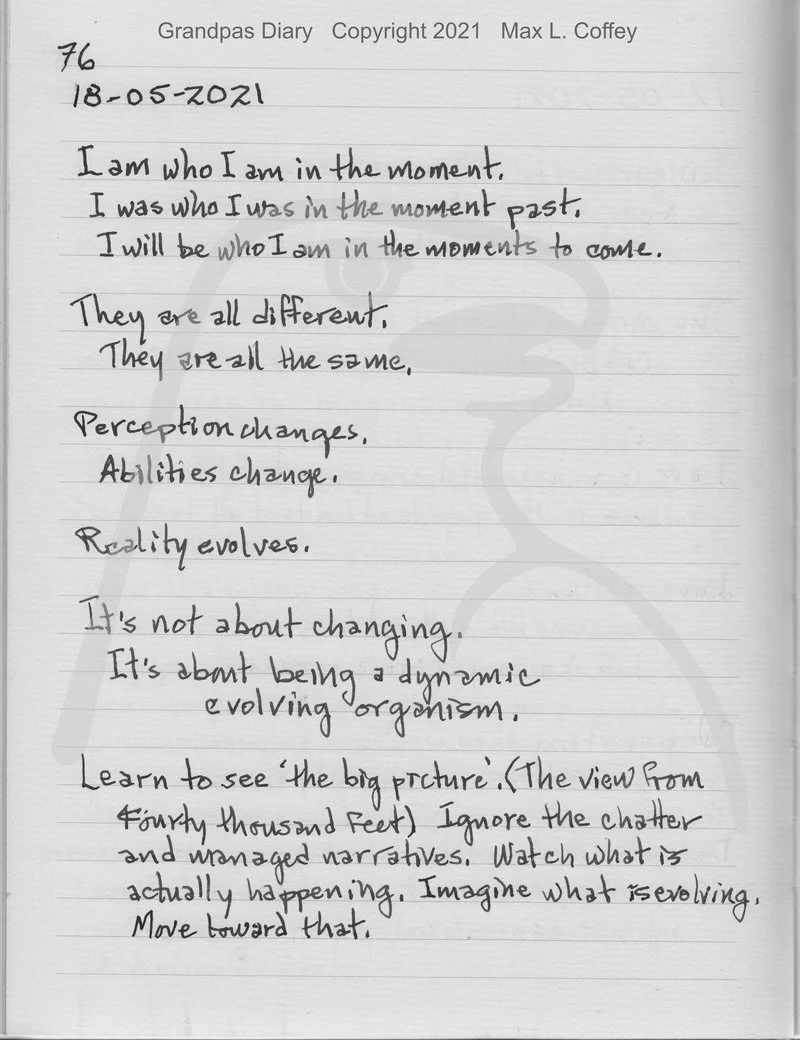 Grandpas Diary Copyright 2021 Max L. Coffey
76
18-05-2021
I am who I am in the moment.
I was who I was in the moment past.
I will be who I am in the moments to come.
They are all different.
They are all the same.
Perception changes.
Abilities change.
Reality evolves.
It's not about changing.
It's about being a dynamic
evolving organism.
Learn to see 'the big picture'. (The view from
Fourty thousand Feet) Ignore the chatter
and managed narratives. Watch what is
actually happening. Imagine what is evolving.
Move toward that.